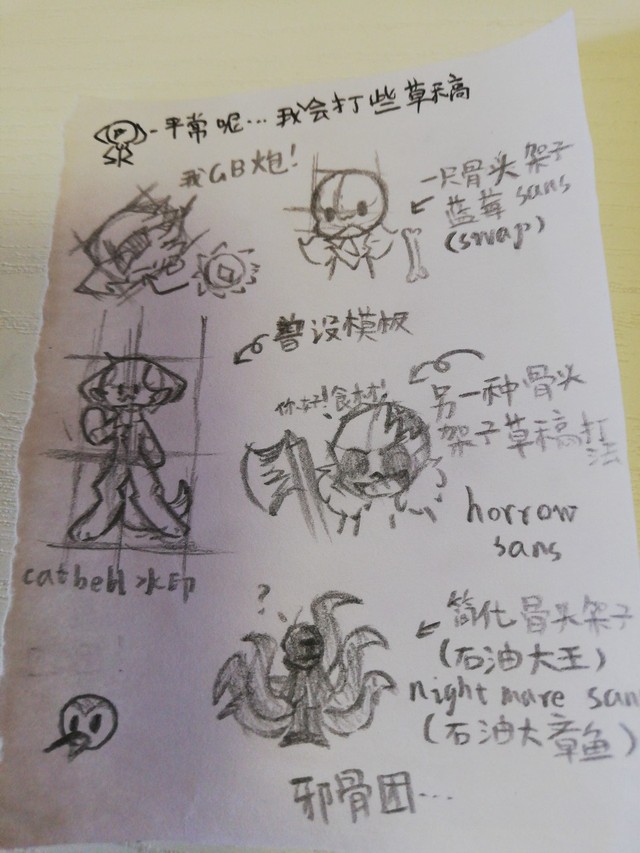 平常呢…我会打些草稿
我GB炮!
一只骨头架子
蓝莓 sans
(swap)
普设模板
你好!食材!
另一种骨头
架子草稿打
法
horrow
sans
catbell水印
?
简化骨头架子
(石油大王)
night mare san
(石油大章鱼)
邪骨团…